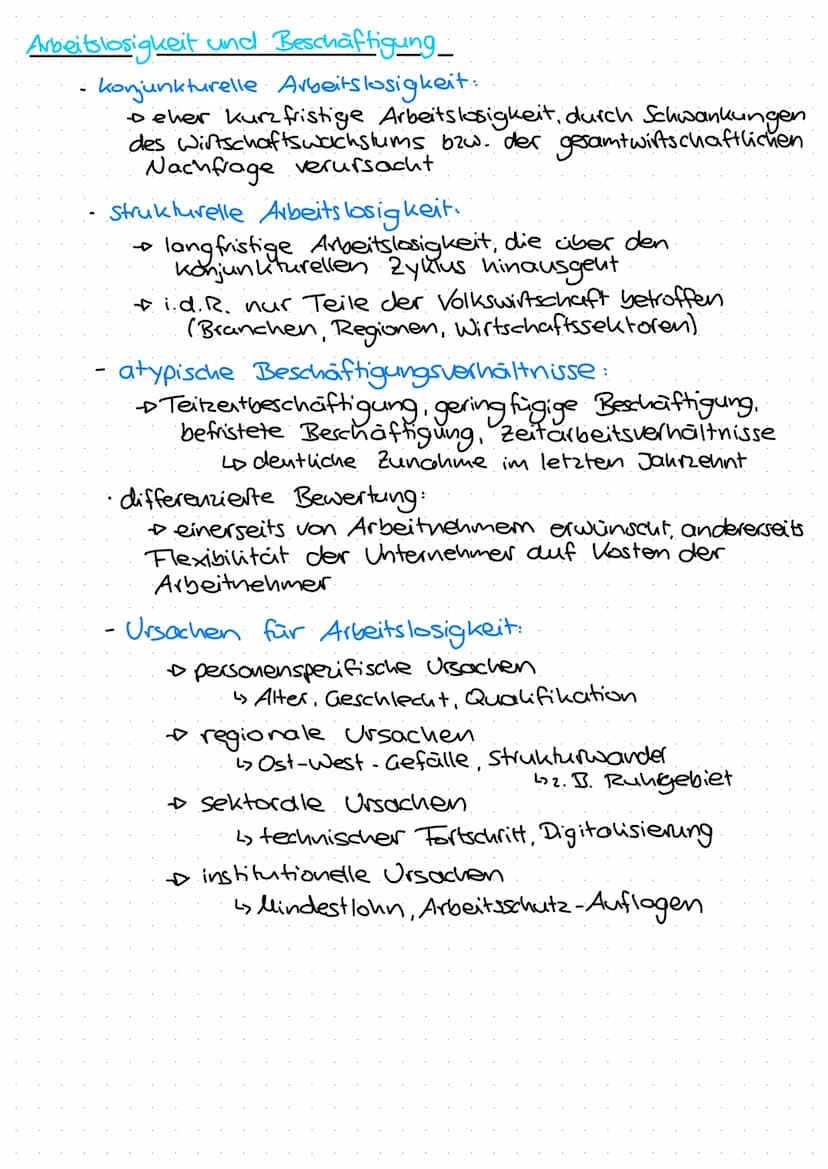 Arbeitslosigkeit und Beschäftigung
- konjunkturelle Arbeitslosigkeit:
→ eher kurzfristige Arbeitslosigkeit, durch Schwankungen
des Wirtschaftswachstums bzw. der gesamtwirtschaftlichen
Nachfrage verursacht
- strukturelle Arbeitslosigkeit:
→ langfristige Arbeitslosigkeit, die über den
konjunkturellen Zyklus hinausgeht
→ i.d.R. nur Teile der Volkswirtschaft betroffen
(Branchen, Regionen, Wirtschaftssektoren)
- atypische Beschäftigungsverhältnisse:
→ Teilzeitbeschäftigung, geringfügige Beschäftigung,
befristete Beschäftigung, Zeitarbeitsverhältnisse
↳ deutliche Zunahme im letzten Jahrzehnt
· differenzierte Bewertung:
→ einerseits von Arbeitnehmern erwünscht, andererseits
Flexibilität der Unternehmer auf Kosten der
Arbeitnehmer
- Ursachen für Arbeitslosigkeit:
→ personenspezifische Ursachen
↳ Alter, Geschlecht, Qualifikation
→ regionale Ursachen
↳ Ost-West-Gefälle, Strukturwandel
↳ z. B. Ruhrgebiet
→ sektorale Ursachen
↳ technischer Fortschritt, Digitalisierung
→ institutionelle Ursachen
↳ Mindestlohn, Arbeitsschutz-Auflagen